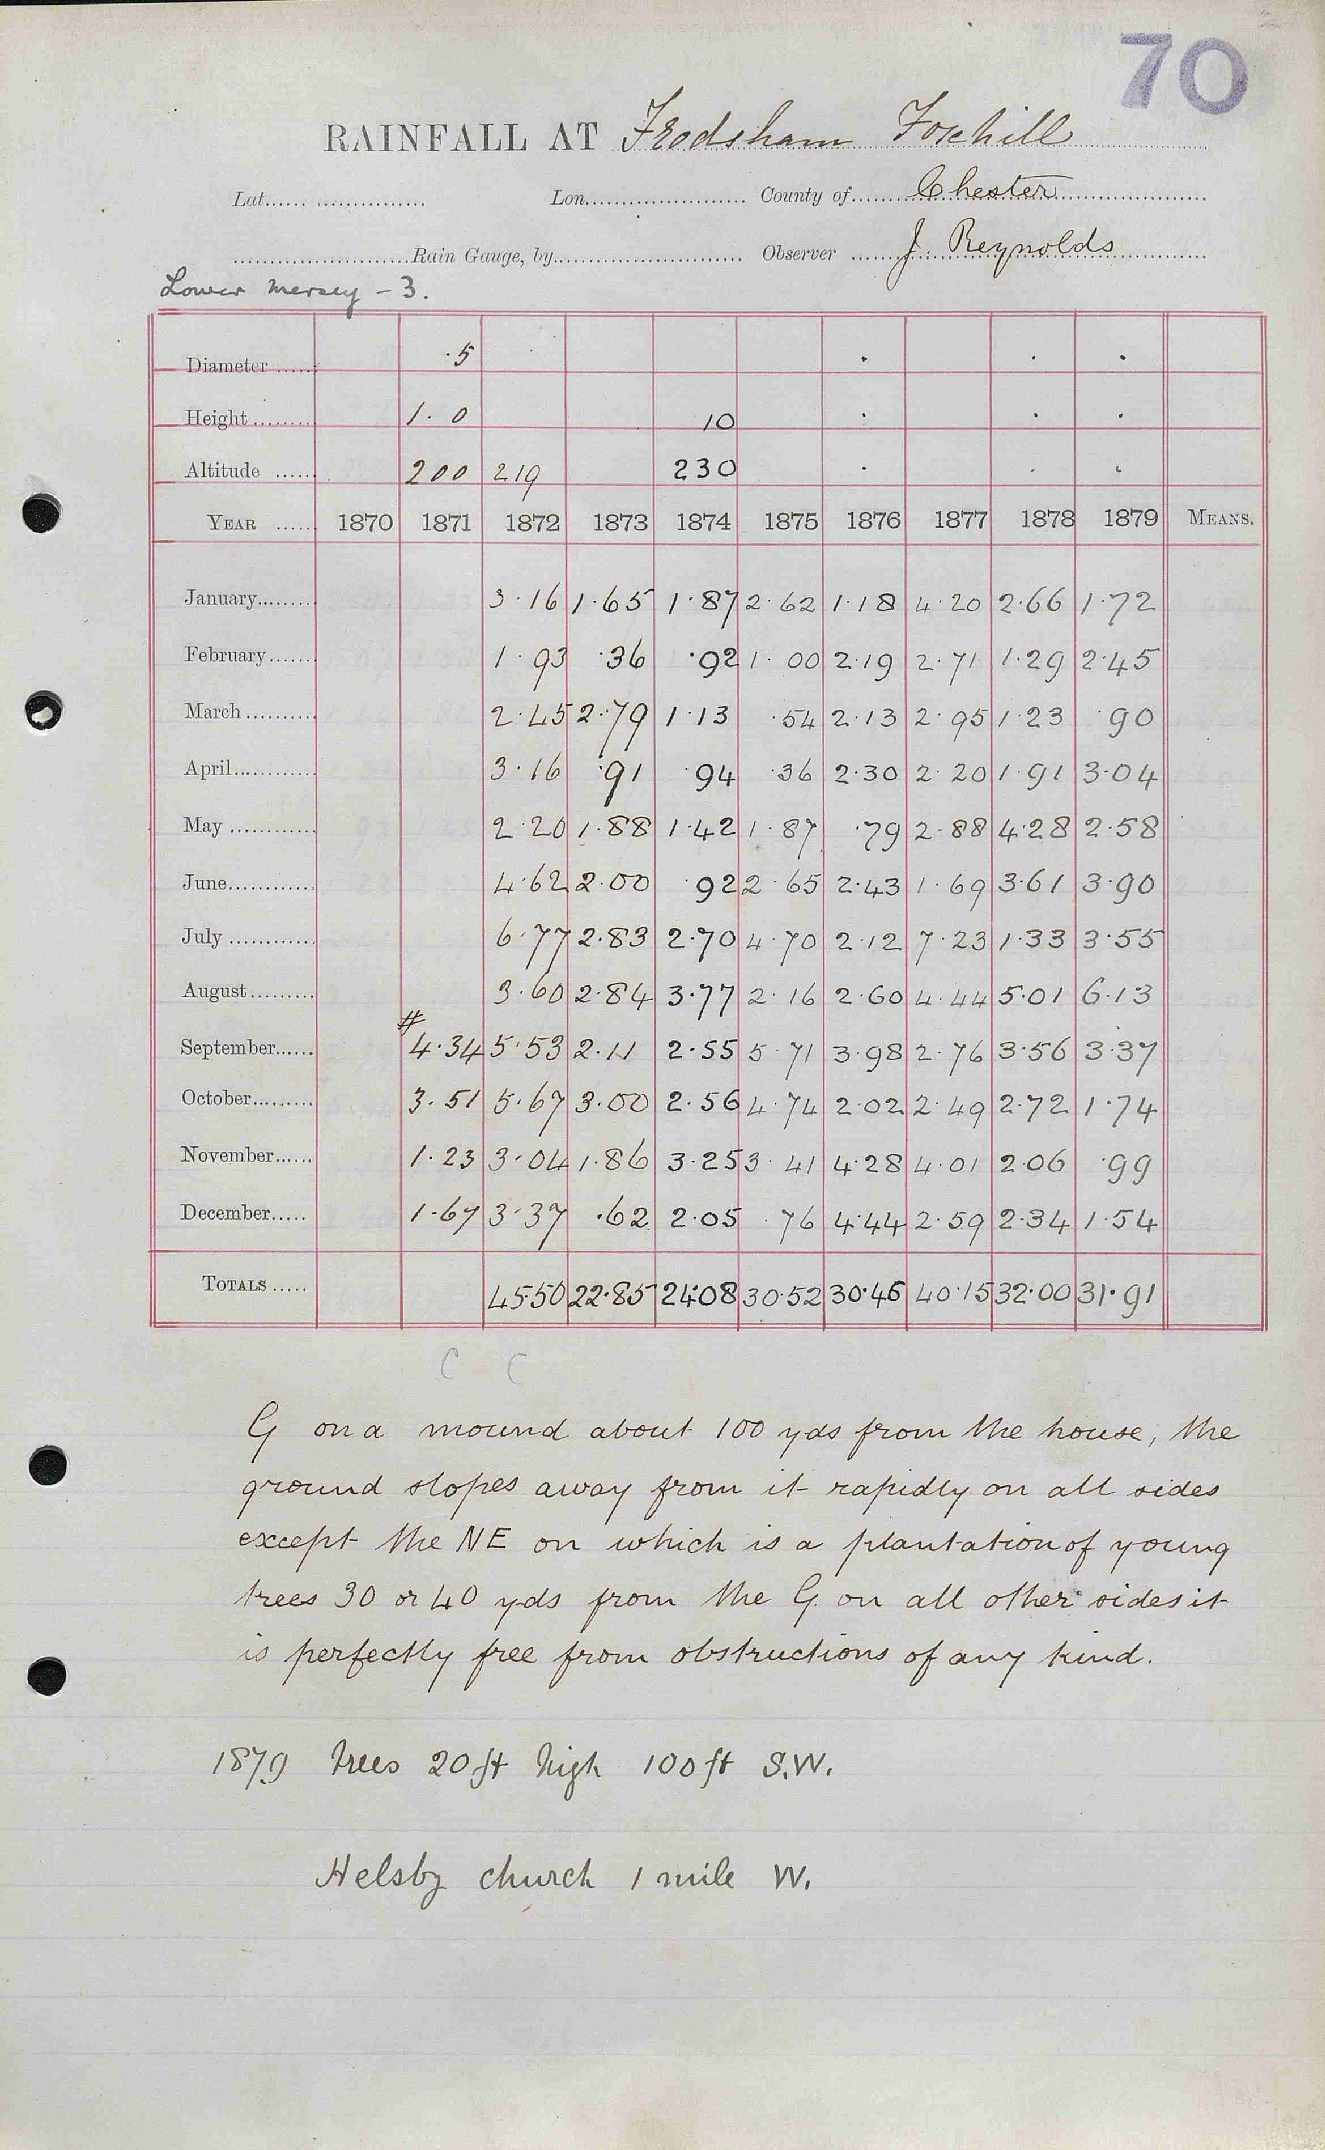 70
RAINFALL AT Frodsham Foxhill
Lat. Lon. County of Chester
Rain Gauge, by Observer J. Reynolds
Lower Mersey - 3.
Diameter ·5
Height 1·0 10
Altitude 200 219 230
YEAR 1870 1871 1872 1873 1874 1875 1876 1877 1878 1879 MEANS.
January 3·16 1·65 1·87 2·62 1·18 4·20 2·66 1·72
February 1·93 ·36 ·92 1·00 2·19 2·71 1·29 2·45
March 2·45 2·79 1·13 ·54 2·13 2·95 1·23 ·90
April 3·16 ·91 94 ·36 2·30 2·20 1·91 3·04
May 2·20 1·88 1·42 1·87 ·79 2·88 4·28 2·58
June 4·62 2·00 92 2·65 2·43 1·69 3·61 3·90
July 6·77 2·83 2·70 4·70 2·12 7·23 1·33 3·55
August 3·60 2·84 3·77 2·16 2·60 4·44 5·01 6·13
#
September 4·34 5·53 2·11 2·55 5·71 3·98 2·76 3·56 3·37
October 3·51 5·67 3·00 2·56 4·74 2·02 2·49 2·72 1·74
November 1·23 3·04 1·86 3·25 3·41 4·28 4·01 2·06 ·99
December 1·67 3·37 ·62 2·05 ·76 4·44 2·59 2·34 1·54
TOTALS 45·50 22·85 24·08 30·52 30·46 40·15 32·00 31·91
C C
G on a mound about 100 yds from the house, the
ground slopes away from it rapidly on all sides
except the NE on which is a plantation of young
trees 30 or 40 yds from the G. on all other sides it
is perfectly free from obstructions of any kind.
1879 trees 20 ft high 100 ft S.W.
Helsby church 1 mile W.